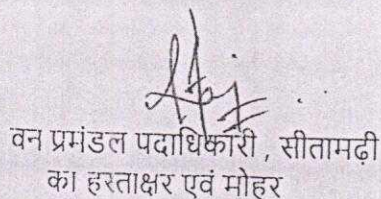 वन प्रमंडल पदाधिकारी , सीतामढ़ी
का हस्ताक्षर एवं मोहर